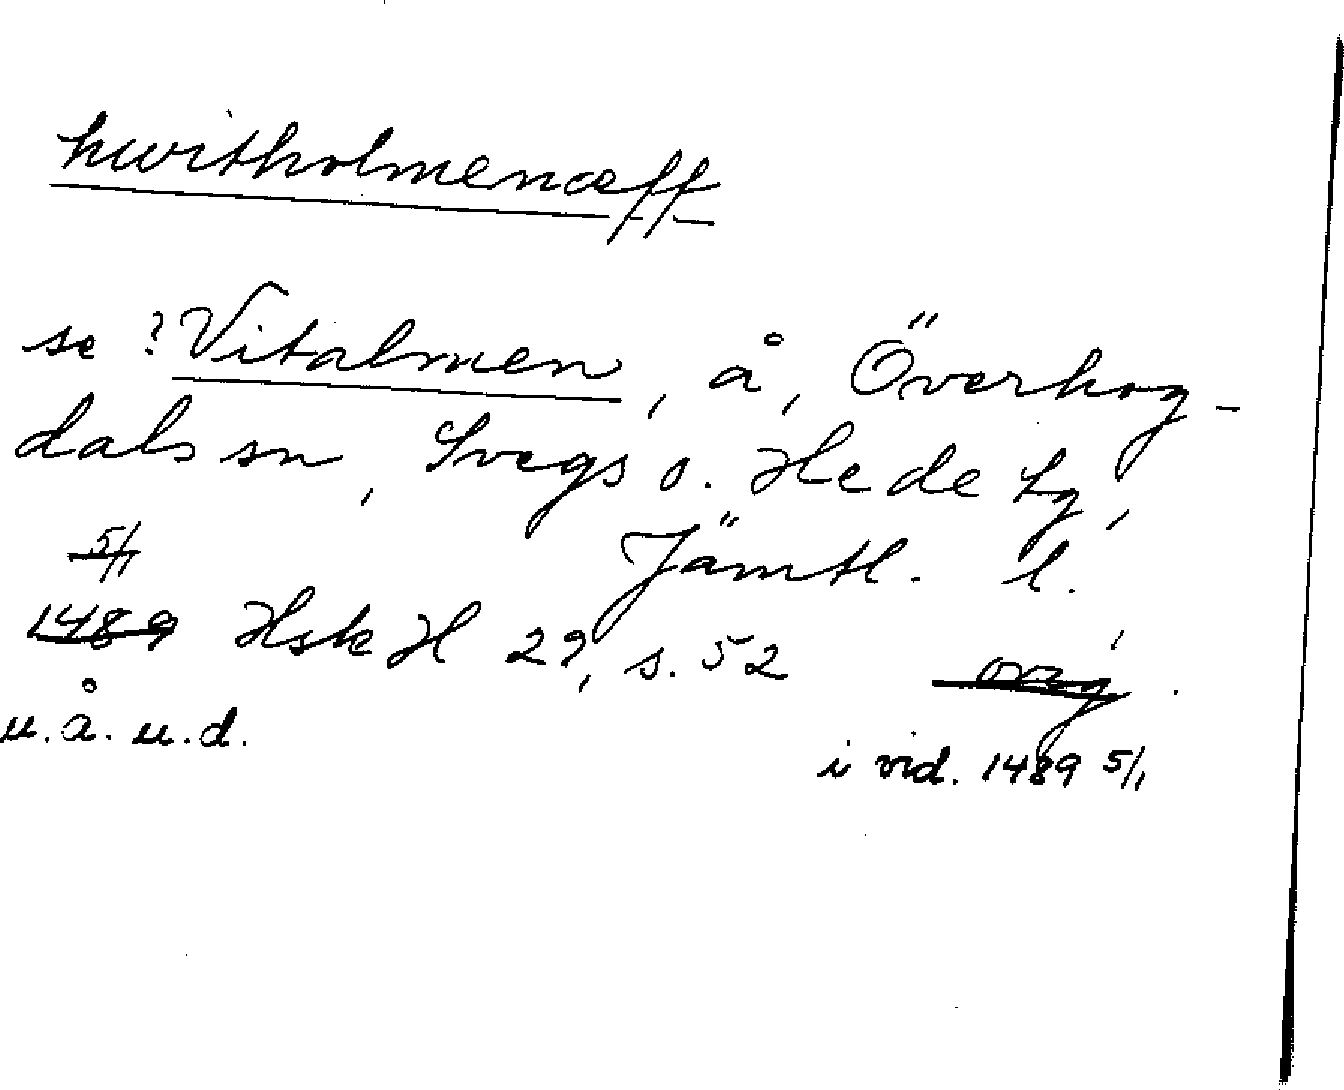 hwitholmenæff
se ? Vitalmen, å, Överhog-
dals sn, Svegs o. Hede tg,
Jämtl. l.
5/1
1489 Hsk H 22, s. 52 orig
u.å. u.d.
i vid. 1489 5/1